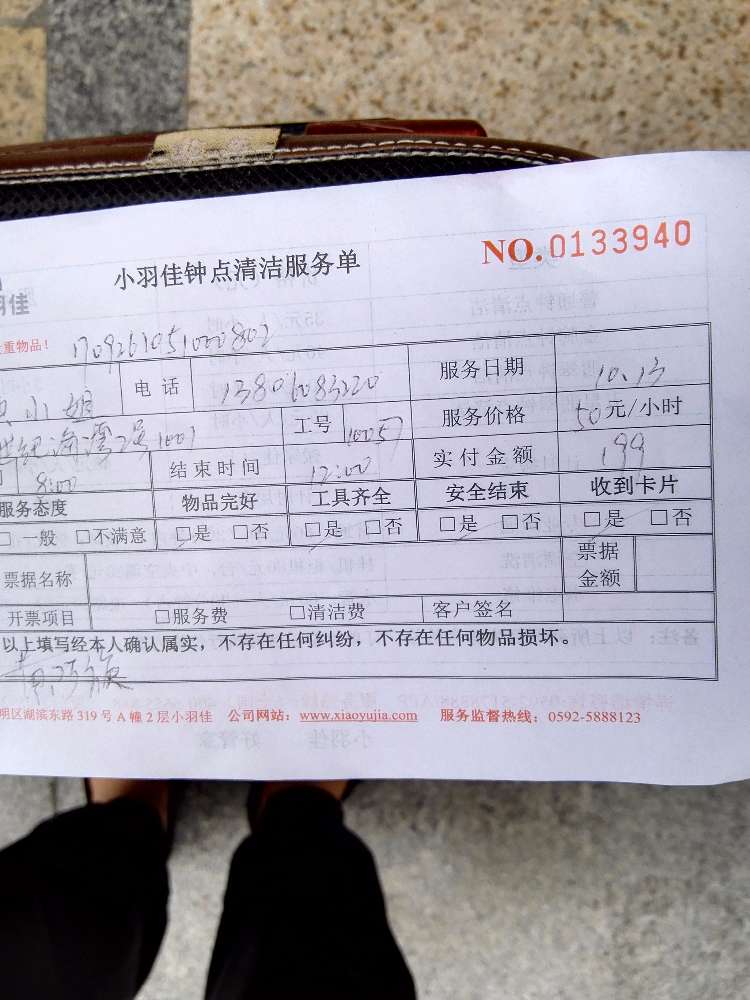 小羽佳钟点清洁服务单 NO.0133940
羽佳
重物品!
小姐 电话 13806083220 服务日期 10.13
1001 工号 10057 服务价格 50元/小时
8:00 结束时间 12:00 实付金额 199
服务态度 物品完好 工具齐全 安全结束 收到卡片
□一般 □不满意 □是 □否 □是 □否 □是 □否 □是 □否
票据名称 票据金额
开票项目 □服务费 □清洁费 客户签名
以上填写经本人确认属实，不存在任何纠纷，不存在任何物品损坏。
明区湖滨东路 319 号 A 幢 2 层小羽佳 公司网站：www.xiaoyujia.com 服务监督热线：0592-5888123